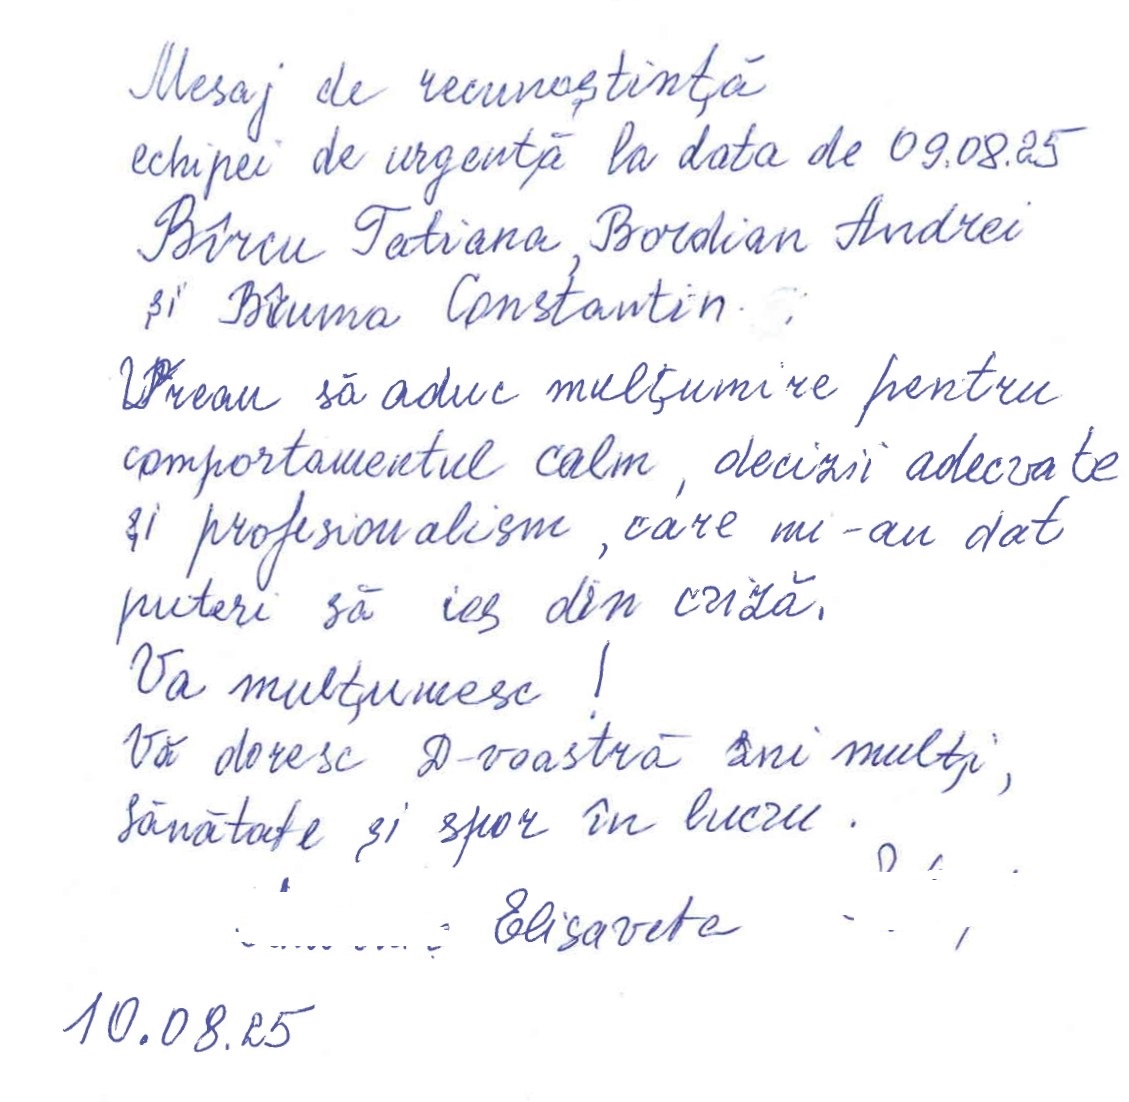 Mesaj de recunoștință
echipei de urgență la data de 09.08.25
Bîrcu Tatiana, Bordian Andrei
și Bruma Constantin.
Vreau să aduc mulțumire pentru
comportamentul calm, decizii adecvate
și profesionalism, care mi-au dat
puteri să ies din criză.
Va mulțumesc !
Vă doresc D-voastră ani mulți,
sănătate și spor în lucru.
Elisaveta
10.08.25